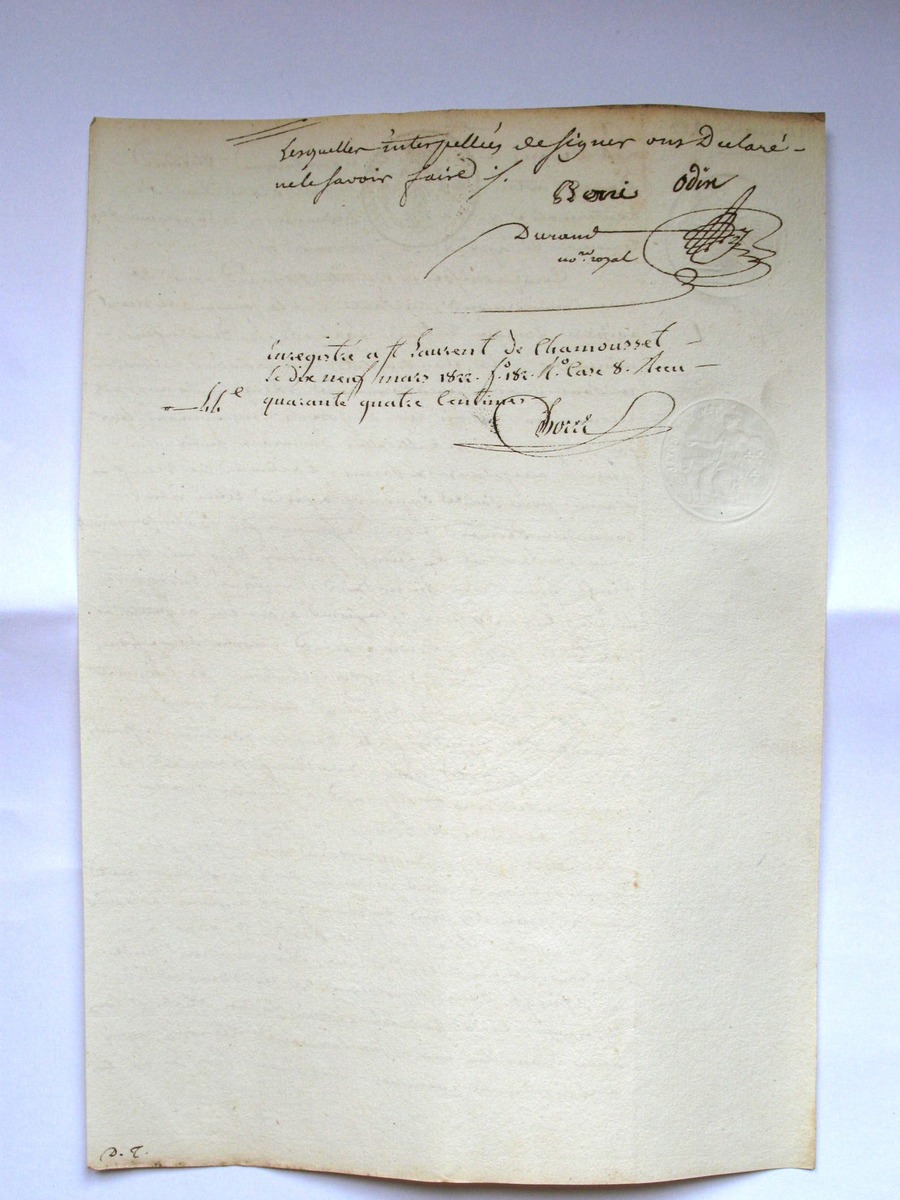 Lesquelles interpellées de signer ont Declaré
ne le savoir faire ./.
Berri Odin
Durand
no.re royal
Enregistré a St Laurent de Chamousset
le dix neuf mars 1822. fo. 182. Ro. Case 8. Recu
44c quarante quatre Centimes
D. T.